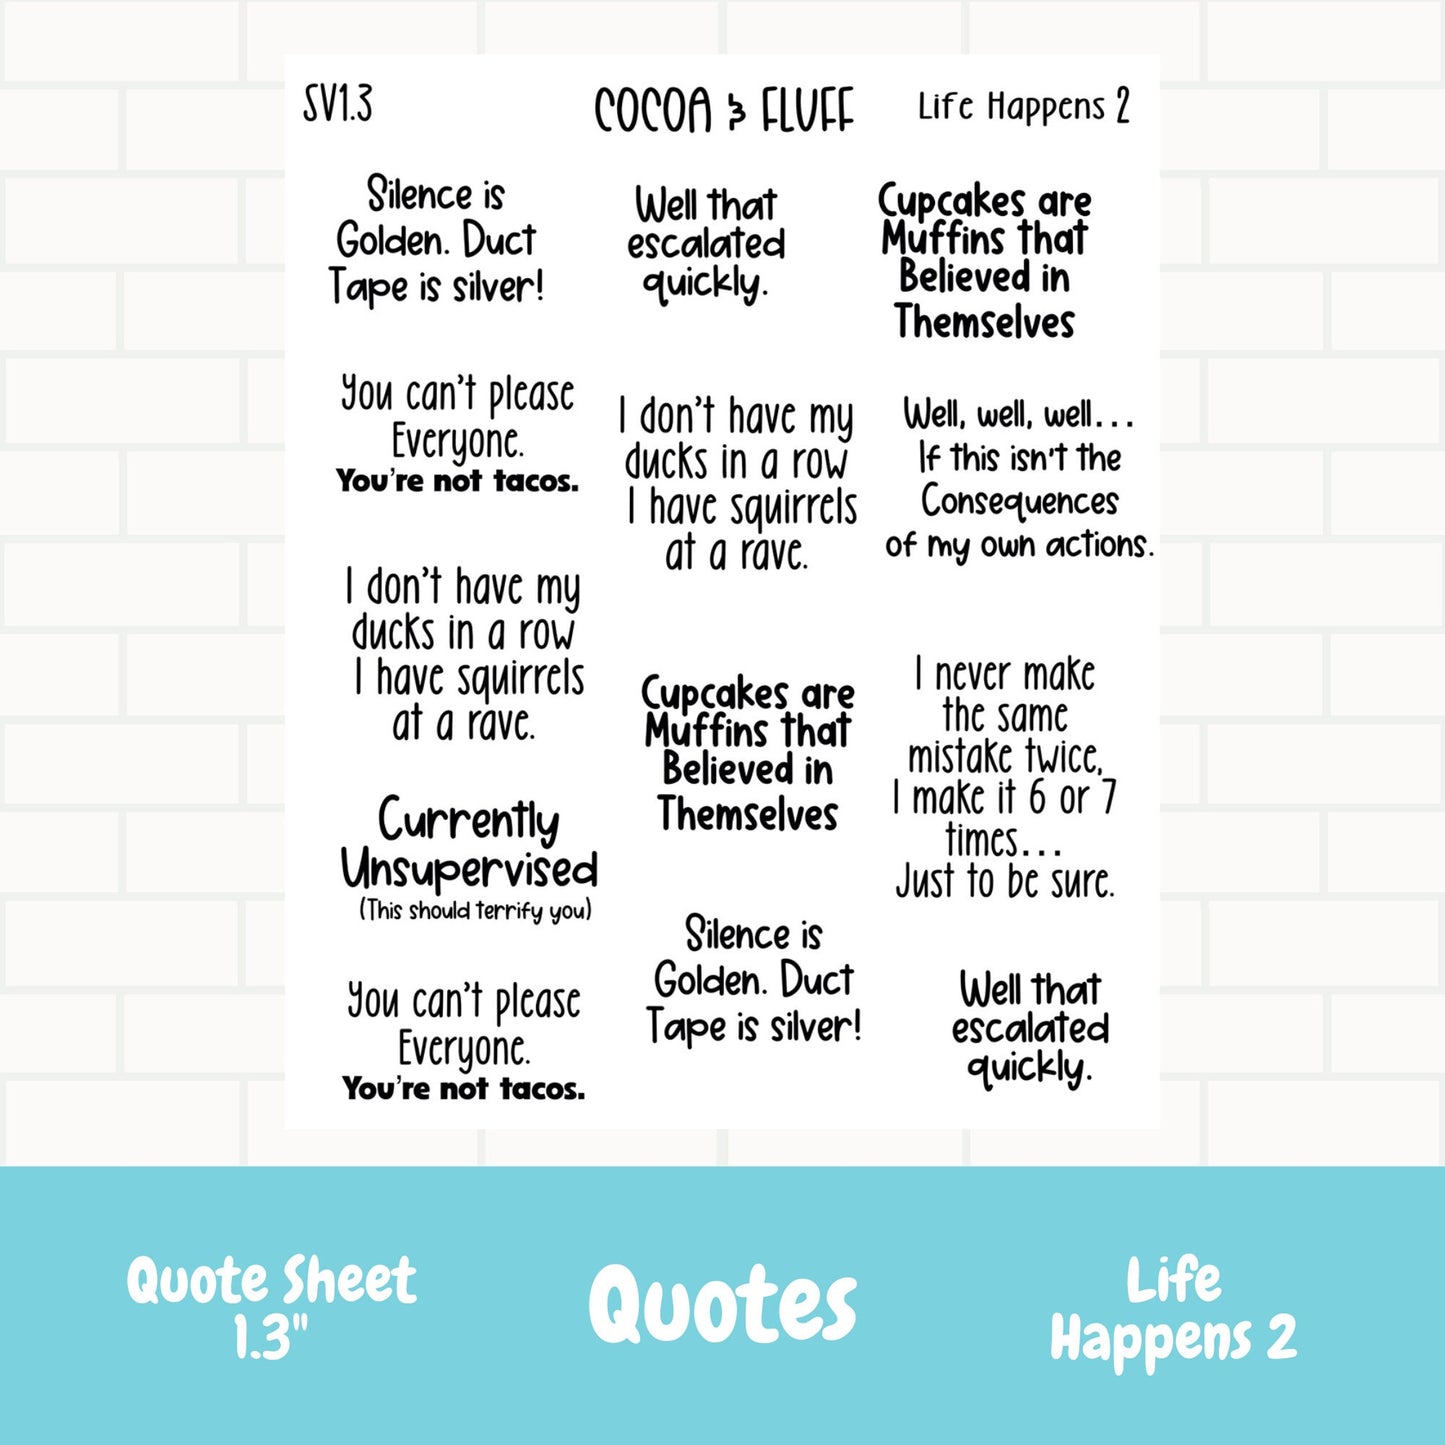 SV1.3
COCOA & FLUFF
Life Happens 2
Silence is
Golden. Duct
Tape is silver!
You can't please
Everyone.
You're not tacos.
I don't have my
ducks in a row
I have squirrels
at a rave.
Currently
Unsupervised
(This should terrify you)
You can't please
Everyone.
You're not tacos.
Well that
escalated
quickly.
I don't have my
ducks in a row
I have squirrels
at a rave.
Cupcakes are
Muffins that
Believed in
Themselves
Silence is
Golden. Duct
Tape is silver!
Cupcakes are
Muffins that
Believed in
Themselves
Well, well, well...
If this isn't the
Consequences
of my own actions.
I never make
the same
mistake twice,
I make it 6 or 7
times...
Just to be sure.
Well that
escalated
quickly.
Quote Sheet
1.3"
Quotes
Life
Happens 2